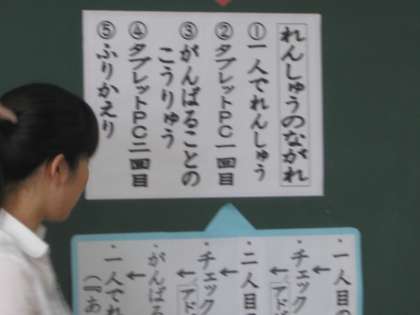 れんしゅうのながれ
①一人でれんしゅう
②タブレットPC一回目
③がんばることの
こうりゅう
④タブレットPC二回目
⑤ふりかえり
・一人目の
・チェック
アド
・二人目の
・チェック
アド
・がんばる
・一人でれ
(『あ